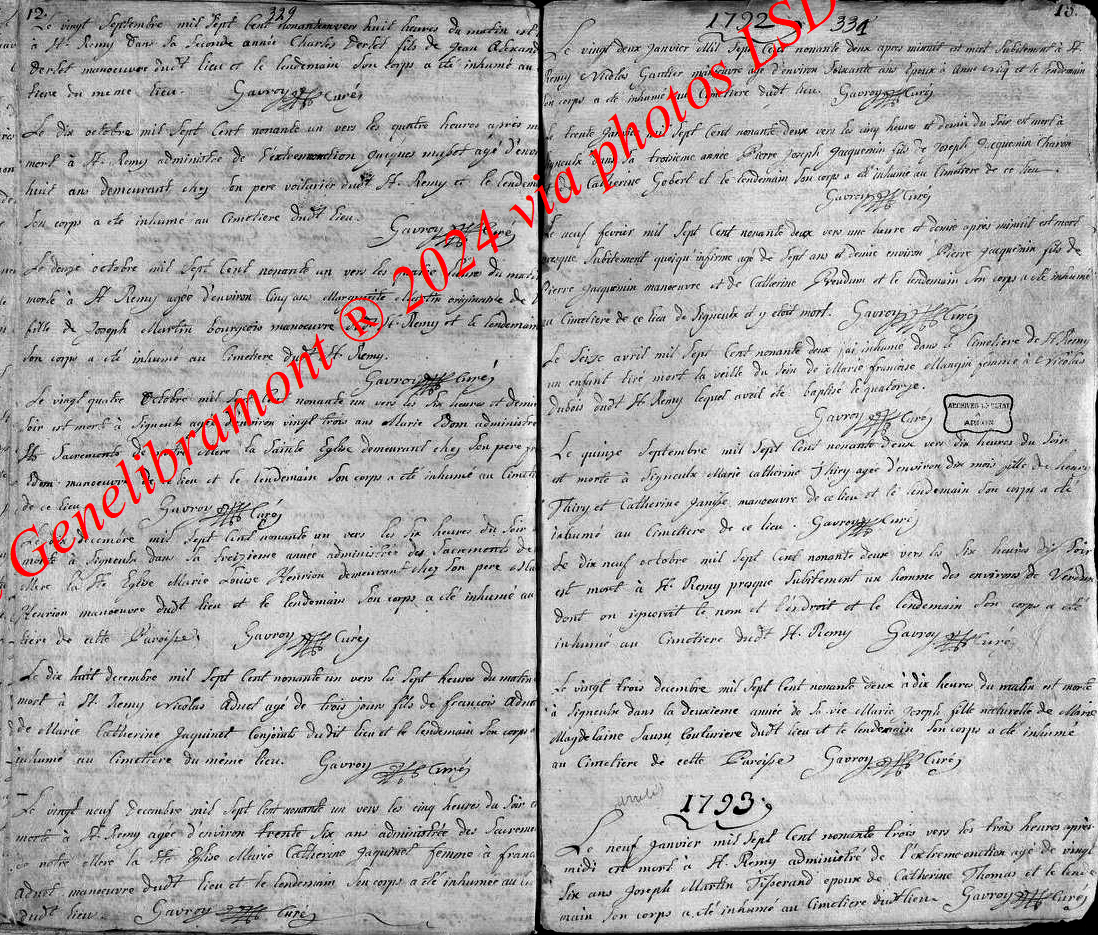 12.
329
Le vingt Septembre mil Sept Cent nonante un vers huit heures du matin est
à St. Remy dans Sa Seconde année Charles Perlot fils de Jean
Perlot manoeuvre dudt lieu et le lendemain Son corps a été inhumé au
tiere du meme lieu. Gavroy Curé
Le dix octobre mil Sept Cent nonante un vers les quatre heures après
mort à St. Remy administré de l'extremonction Jacques mabot agé d'env
huit ans demeurant chez Son pere voiturier dudt St. Remy et le lendem
Son corps a eté inhumé au Cimetiere dudt lieu.
Gavroy Curé
Le douze octobre mil Sept Cent nonante un vers les heures du matin
morte à St Remy agée d'environ Cinq ans Marguerite Martin originaire de
fille de Joseph Martin bourgeois manoeuvre St. Remy et le lendemain
Son corps a été inhumé au Cimetiere dudt St. Remy.
Gavroy Curé
Le vingt quatre Octobre mil Sept Cent nonante un vers les Six heures et demie
Soir est mort à Signeulx agée d'environ vingt trois ans Marie Edom administré
Sts Sacrements de notre Mere la Sainte Eglise demeurant chez Son pere
Edom manoeuvre de ce lieu et le lendemain Son corps a été inhumé au Cimet
de ce lieu Gavroy Curé
decembre mil Sept Cent nonante un vers les Six heures du Soir
morte à Signeulx dans Sa treizieme année administrée des Sacrements de
Mere la Ste Eglise Marie Louise Henrion demeurant chez Son pere
Henrion manoeuvre dudt lieu et le lendemain Son corps a été inhumé au
tiere de cette Paroisse. Gavroy Curé
Le dix huit decembre mil Sept Cent nonante un vers les Sept heures du matin
mort à St. Remy Nicolas Aduet agé de trois jours fils de françois Aduet
de Marie Catherine Jaquinet Conjoints dudit lieu et le lendemain Son corps
inhumé au Cimetiere du même lieu. Gavroy Curé
Le vingt neuf Decembre mil Sept Cent nonante un vers les cinq heures du Soir
morte à St. Remy agée d'environ trente Six ans administrée des Sacreme
de notre Mere la Ste Eglise Marie Catherine Jaquinet femme à franc
Aduet manoeuvre dudt lieu et le lendemain Son corps a été inhumée au
dudt lieu. Gavroy Curé
1792
331
13.
Le vingt deux Janvier Mil Sept Cent nonante deux apres minuit est mort Subitement à St.
Remy Nicolas Gautier manoeuvre agé d'environ Soixante ans Epoux à Anne et le lendemain
Son corps a été inhumé au Cimetiere dudt lieu. Gavroy Curé
Le trente Janvier mil Sept Cent nonante deux vers les cinq heures et demie du Soir est mort à
Signeulx dans Sa troisieme année Pierre Joseph Jacquemin fils de Joseph Jacquemin Charon
et de Catherine Gobert et le lendemain Son corps a été inhumé au Cimetiere de ce lieu
Gavroy Curé
Le neuf fevrier mil Sept Cent nonante deux vers une heure et demie après minuit est mort
presque Subitement quoique infirme agé de Sept ans et demie environ Pierre Jacquemin fils de
Pierre Jacquemin manoeuvre et de Catherine Grendum et le lendemain Son corps a été inhumé
au Cimetiere de ce lieu de Signeulx et y étoit mort. Gavroy Curé
Le Seize avril mil Sept Cent nonante deux j'ai inhumé dans le Cimetiere de St Remy
un enfant tiré mort la veille du Sein de Marie françoise Mangin femme à Nicolas
dubois dudt St. Remy lequel avoit été baptisé
Gavroy Curé
ARCHIVES DE L'ETAT
A
ARLON
Le quinze Septembre mil Sept Cent nonante deux vers dix heures du Soir
est morte à Signeulx Marie Catherine Thiry agée d'environ dix mois fille de
Thiry et Catherine manoeuvre de ce lieu et le lendemain Son corps a été
inhumé au Cimetiere de ce lieu. Gavroy Curé
Le dix neuf octobre mil Sept Cent nonante deux vers les Six heures du Soir
est mort à St. Remy presque Subitement un homme des environs de Verdun
dont on ignoroit le nom et l'endroit et le lendemain Son corps a été
inhumé au Cimetiere dudt St. Remy Gavroy Curé
Le vingt trois decembre mil Sept Cent nonante deux à dix heures du matin est morte
à Signeulx dans la deuxieme année de Sa vie Marie Joseph fille naturelle de Marie
Magdelaine couturiere dudt lieu et le lendemain Son corps a été inhumé
au Cimetiere de cette Paroisse Gavroy Curé
1793
Le neuf Janvier mil Sept Cent nonante trois vers les trois heures après
midi est mort à St Remy administré de l'extreme-onction agé de vingt
Six ans Joseph Martin Tisserand epoux de Catherine Thomas et le lende
main Son corps a été inhumé au Cimetiere dudt lieu Gavroy Curé
Genelibramont ® 2024 via photos LSD